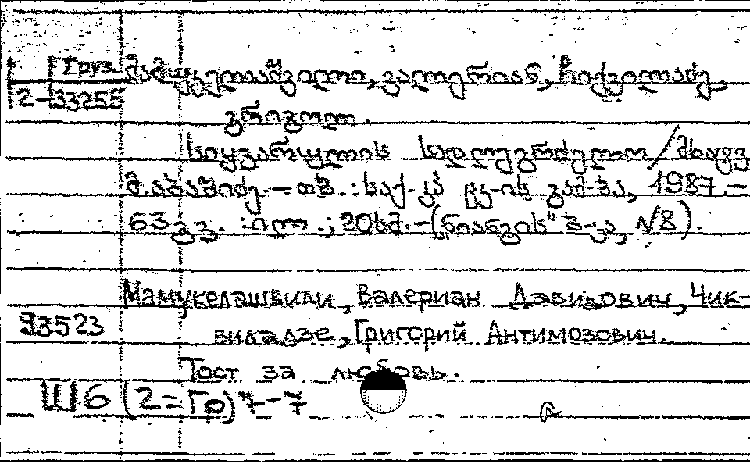 Груз. მამუკელაშვილი, ვალერიან, ჩიქვილაძე,
2-33255
გრიგოლ.
სიყვარულის სადღეგრძელო / მხატვ
მ. აბაშიძე. – თბ. : საქ. კპ ცკ-ის გამ-ბა, 1987. –
63 გვ. : ილ. ; 20 სმ. – („ნიანგის" ბ-კა, №8).
Мамукелашвили, Валериан Давидович, Чик-
93523 виладзе, Григорий Антимозович.
Тост за любовь.
Ш6(2=Гр)7-7